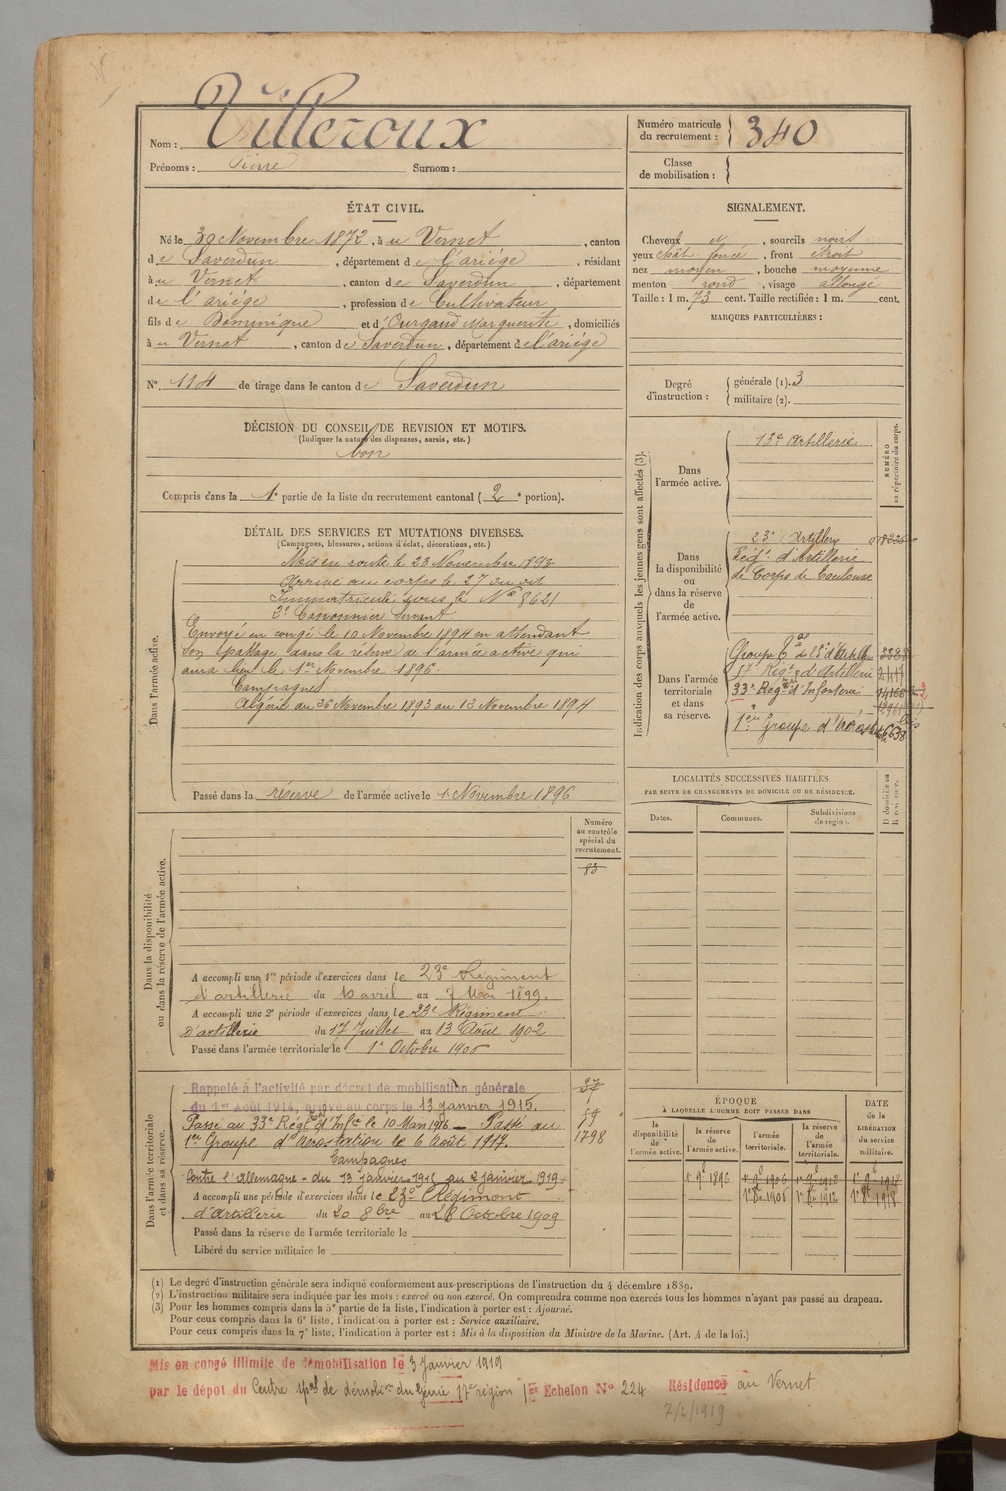 Nom : Villeroux
Prénoms : Pierre Surnom :
Numéro matricule du recrutement : 340
Classe de mobilisation :
ÉTAT CIVIL.
Né le 30 Novembre 1872, à u Vernet, canton
de Saverdun, département de l'ariége, résidant
à u Vernet, canton de Saverdun, département
de l'ariége, profession de Cultivateur
fils de Dominique et d'Ourgaud Marguerite, domiciliés
à u Vernet, canton de Saverdun, département de l'ariége
N°. 114 de tirage dans le canton de Saverdun
DÉCISION DU CONSEIL DE REVISION ET MOTIFS.
(Indiquer la nature des dispenses, sursis, etc.)
bon
Compris dans la 1e partie de la liste du recrutement cantonal (2e portion).
SIGNALEMENT.
Cheveux et, sourcils noirs
yeux chât. foncé, front étroit
nez moyen, bouche moyenne
menton rond, visage allongé
Taille : 1 m. 73 cent. Taille rectifiée : 1 m. cent.
MARQUES PARTICULIÈRES :
Degré d'instruction : générale (1). 3
militaire (2).
DÉTAIL DES SERVICES ET MUTATIONS DIVERSES.
(Campagnes, blessures, actions d'éclat, décorations, etc.)
Dans l'armée active.
Mis en route le 26 Novembre 1893
arrivé au corps le 27 du dit
Immatriculé sous le No 8621
2e Canonnier Servant
Envoyé en congé le 10 Novembre 1894 en attendant
son passage dans la réserve de l'armée active qui
aura lieu le 1er Novembre 1896.
Campagnes
Algérie du 26 Novembre 1893 au 13 Novembre 1894
Passé dans la réserve de l'armée active le 1 Novembre 1896
Indication des corps auxquels les jeunes gens sont affectés (3).
NUMÉRO au répertoire du corps.
Dans l'armée active.
13e Artillerie
Dans la disponibilité ou dans la réserve de l'armée active.
23e Artillerie
Régt d'Artillerie
de Corps de Toulouse
Dans l'armée territoriale et dans sa réserve.
17e Régt d'Artillerie
33e Régt d'Infanterie
1er Groupe d'Aérost
LOCALITÉS SUCCESSIVES HABITÉES
PAR SUITE DE CHANGEMENTS DE DOMICILE OU DE RÉSIDENCE.
Dates. Communes. Subdivisions de région. D domicile ou R résidence.
Numéro au contrôle spécial du recrutement.
83
Dans la disponibilité ou dans la réserve de l'armée active.
A accompli une 1re période d'exercices dans le 23e Régiment
d'artillerie du 10 avril au 7 Mai 1899.
A accompli une 2e période d'exercices dans le 23e Régiment
d'artillerie du 17 Juillet au 13 Août 1902
Passé dans l'armée territoriale le 1er Octobre 1906
Dans l'armée territoriale et dans sa réserve.
Rappelé à l'activité par décret de mobilisation générale
du 1er Août 1914, arrivé au corps le 13 janvier 1915.
Passé au 33e Régt d'Infie le 10 Mars 1916 – Passé au
1er Groupe d'Aérostation le 6 Août 1917.
Campagnes
Contre l'Allemagne - du 13 janvier 1915 au 2 janvier 1919 -
A accompli une période d'exercices dans le 23e Régiment
d'Artillerie du 20 8bre au 28 Octobre 1909
Passé dans la réserve de l'armée territoriale le
Libéré du service militaire le
37
1798
ÉPOQUE
À LAQUELLE L'HOMME DOIT PASSER DANS
la disponibilité de l'armée active. la réserve de l'armée active. l'armée territoriale. la réserve de l'armée territoriale.
DATE de la LIBÉRATION du service militaire.
(1) Le degré d'instruction générale sera indiqué conformément aux prescriptions de l'instruction du 4 décembre 1889.
(2) L'instruction militaire sera indiquée par les mots : exercé ou non exercé. On comprendra comme non exercés tous les hommes n'ayant pas passé au drapeau.
(3) Pour les hommes compris dans la 5e partie de la liste, l'indication à porter est : Ajourné.
Pour ceux compris dans la 6e liste, l'indication à porter est : Service auxiliaire.
Pour ceux compris dans la 7e liste, l'indication à porter est : Mis à la disposition du Ministre de la Marine. (Art. 4 de la loi.)
Mis en congé illimité de démobilisation le 3 Janvier 1919
par le dépôt du Centre spal de démobion du Génie 17e région 1er Echelon N° 224 Résidence au Vernet
7/2/1919